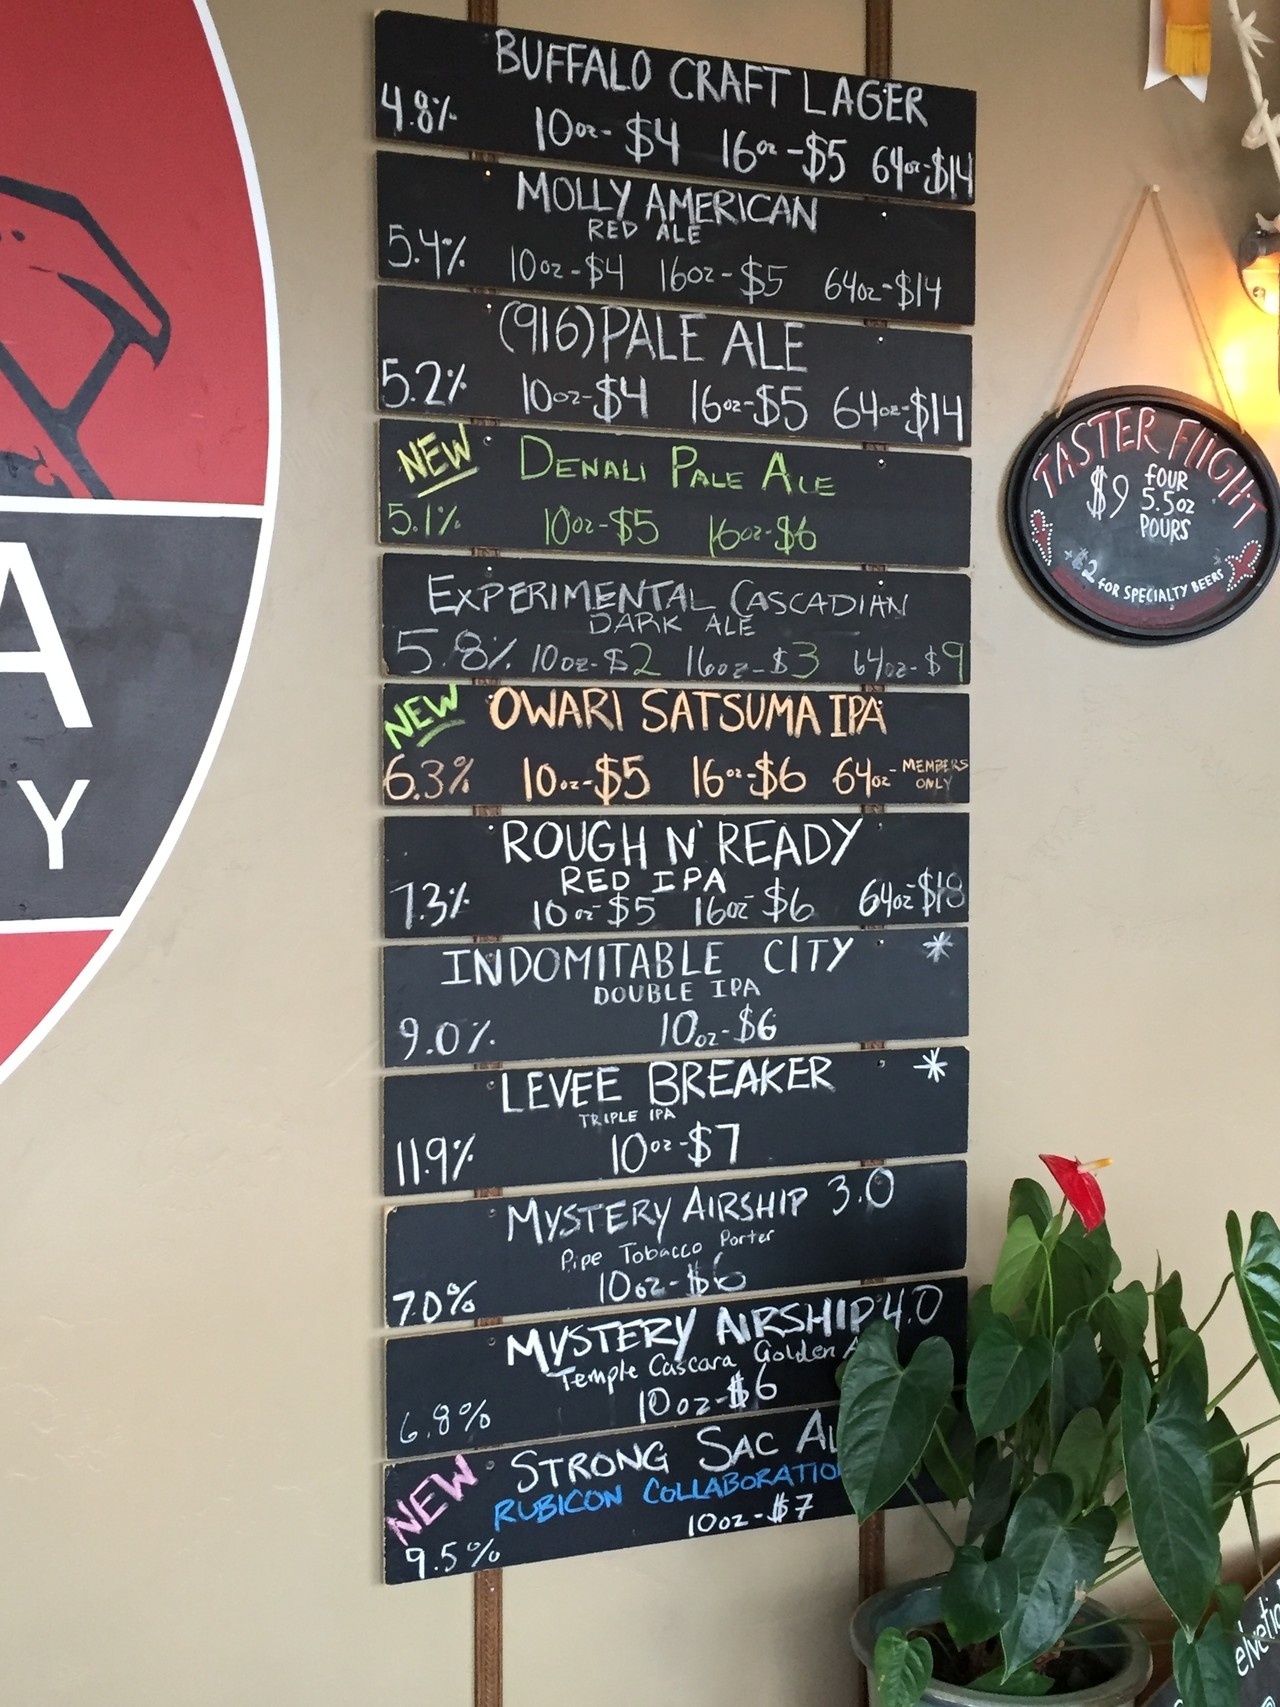 BUFFALO CRAFT LAGER
4.8% 10oz-$4 16oz-$5 64oz-$14
MOLLY AMERICAN
RED ALE
5.4% 10oz-$4 16oz-$5 64oz-$14
(916) PALE ALE
5.2% 10oz-$4 16oz-$5 64oz-$14
NEW DENALI PALE ALE
5.1% 10oz-$5 16oz-$6
EXPERIMENTAL CASCADIAN
DARK ALE
5.8% 10oz-$2 16oz-$3 64oz-$9
NEW OWARI SATSUMA IPA
6.3% 10oz-$5 16oz-$6 64oz- MEMBERS
ONLY
ROUGH N' READY
RED IPA
7.3% 10oz-$5 16oz-$6 64oz-$18
INDOMITABLE CITY *
DOUBLE IPA
9.0% 10oz-$6
LEVEE BREAKER *
TRIPLE IPA
11.9% 10oz-$7
MYSTERY AIRSHIP 3.0
Pipe Tobacco Porter
7.0% 10oz-$6
MYSTERY AIRSHIP 4.0
Temple Cascara Golden A
6.8% 10oz-$6
NEW STRONG SAC AL
RUBICON COLLABORATIO
10oz-$7
9.5%
TASTER FlIGHT
$9 FOUR
5.5oz
POURS
+$2 FOR SPECIALTY BEERS
A
Y
elvetic